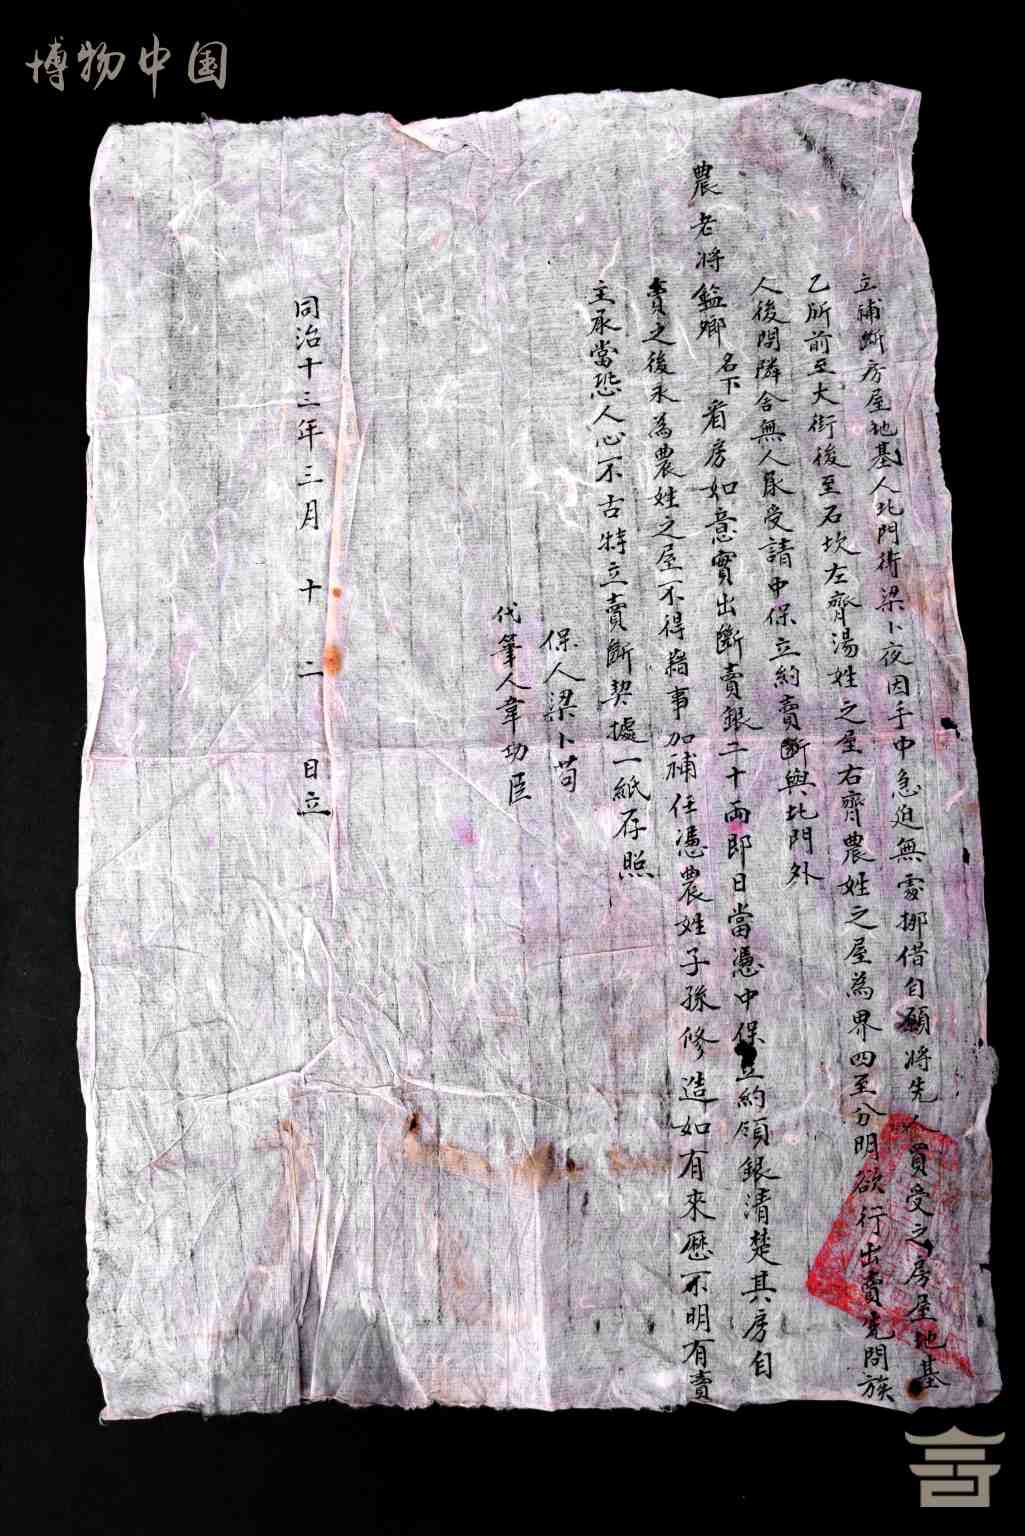 博物中国
立補斷房屋地基人北門街梁卜夜因手中急迫無處挪借自願將先人買受之房屋地基
乙所前至大街後至石坎左齊湯姓之屋右齊農姓之屋為界四至分明欲行出賣先問族
人後問隣舍無人承受請中保立約賣斷與北門外
農老將 名下看房如意實出斷賣銀二十両即日當憑中保立約領銀清楚其房自
賣之後永為農姓之屋不得藉事加補任憑農姓子孫修造如有來歷不明有賣
主承當恐人心不古特立賣斷契據一紙存照
保人梁卜苟
代筆人韋功臣
同治十三年三月十二日立